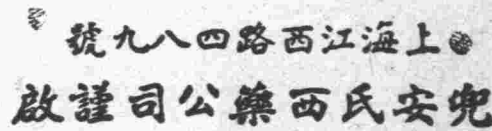 上海江西路四八九號
兜安氏西藥公司謹啟